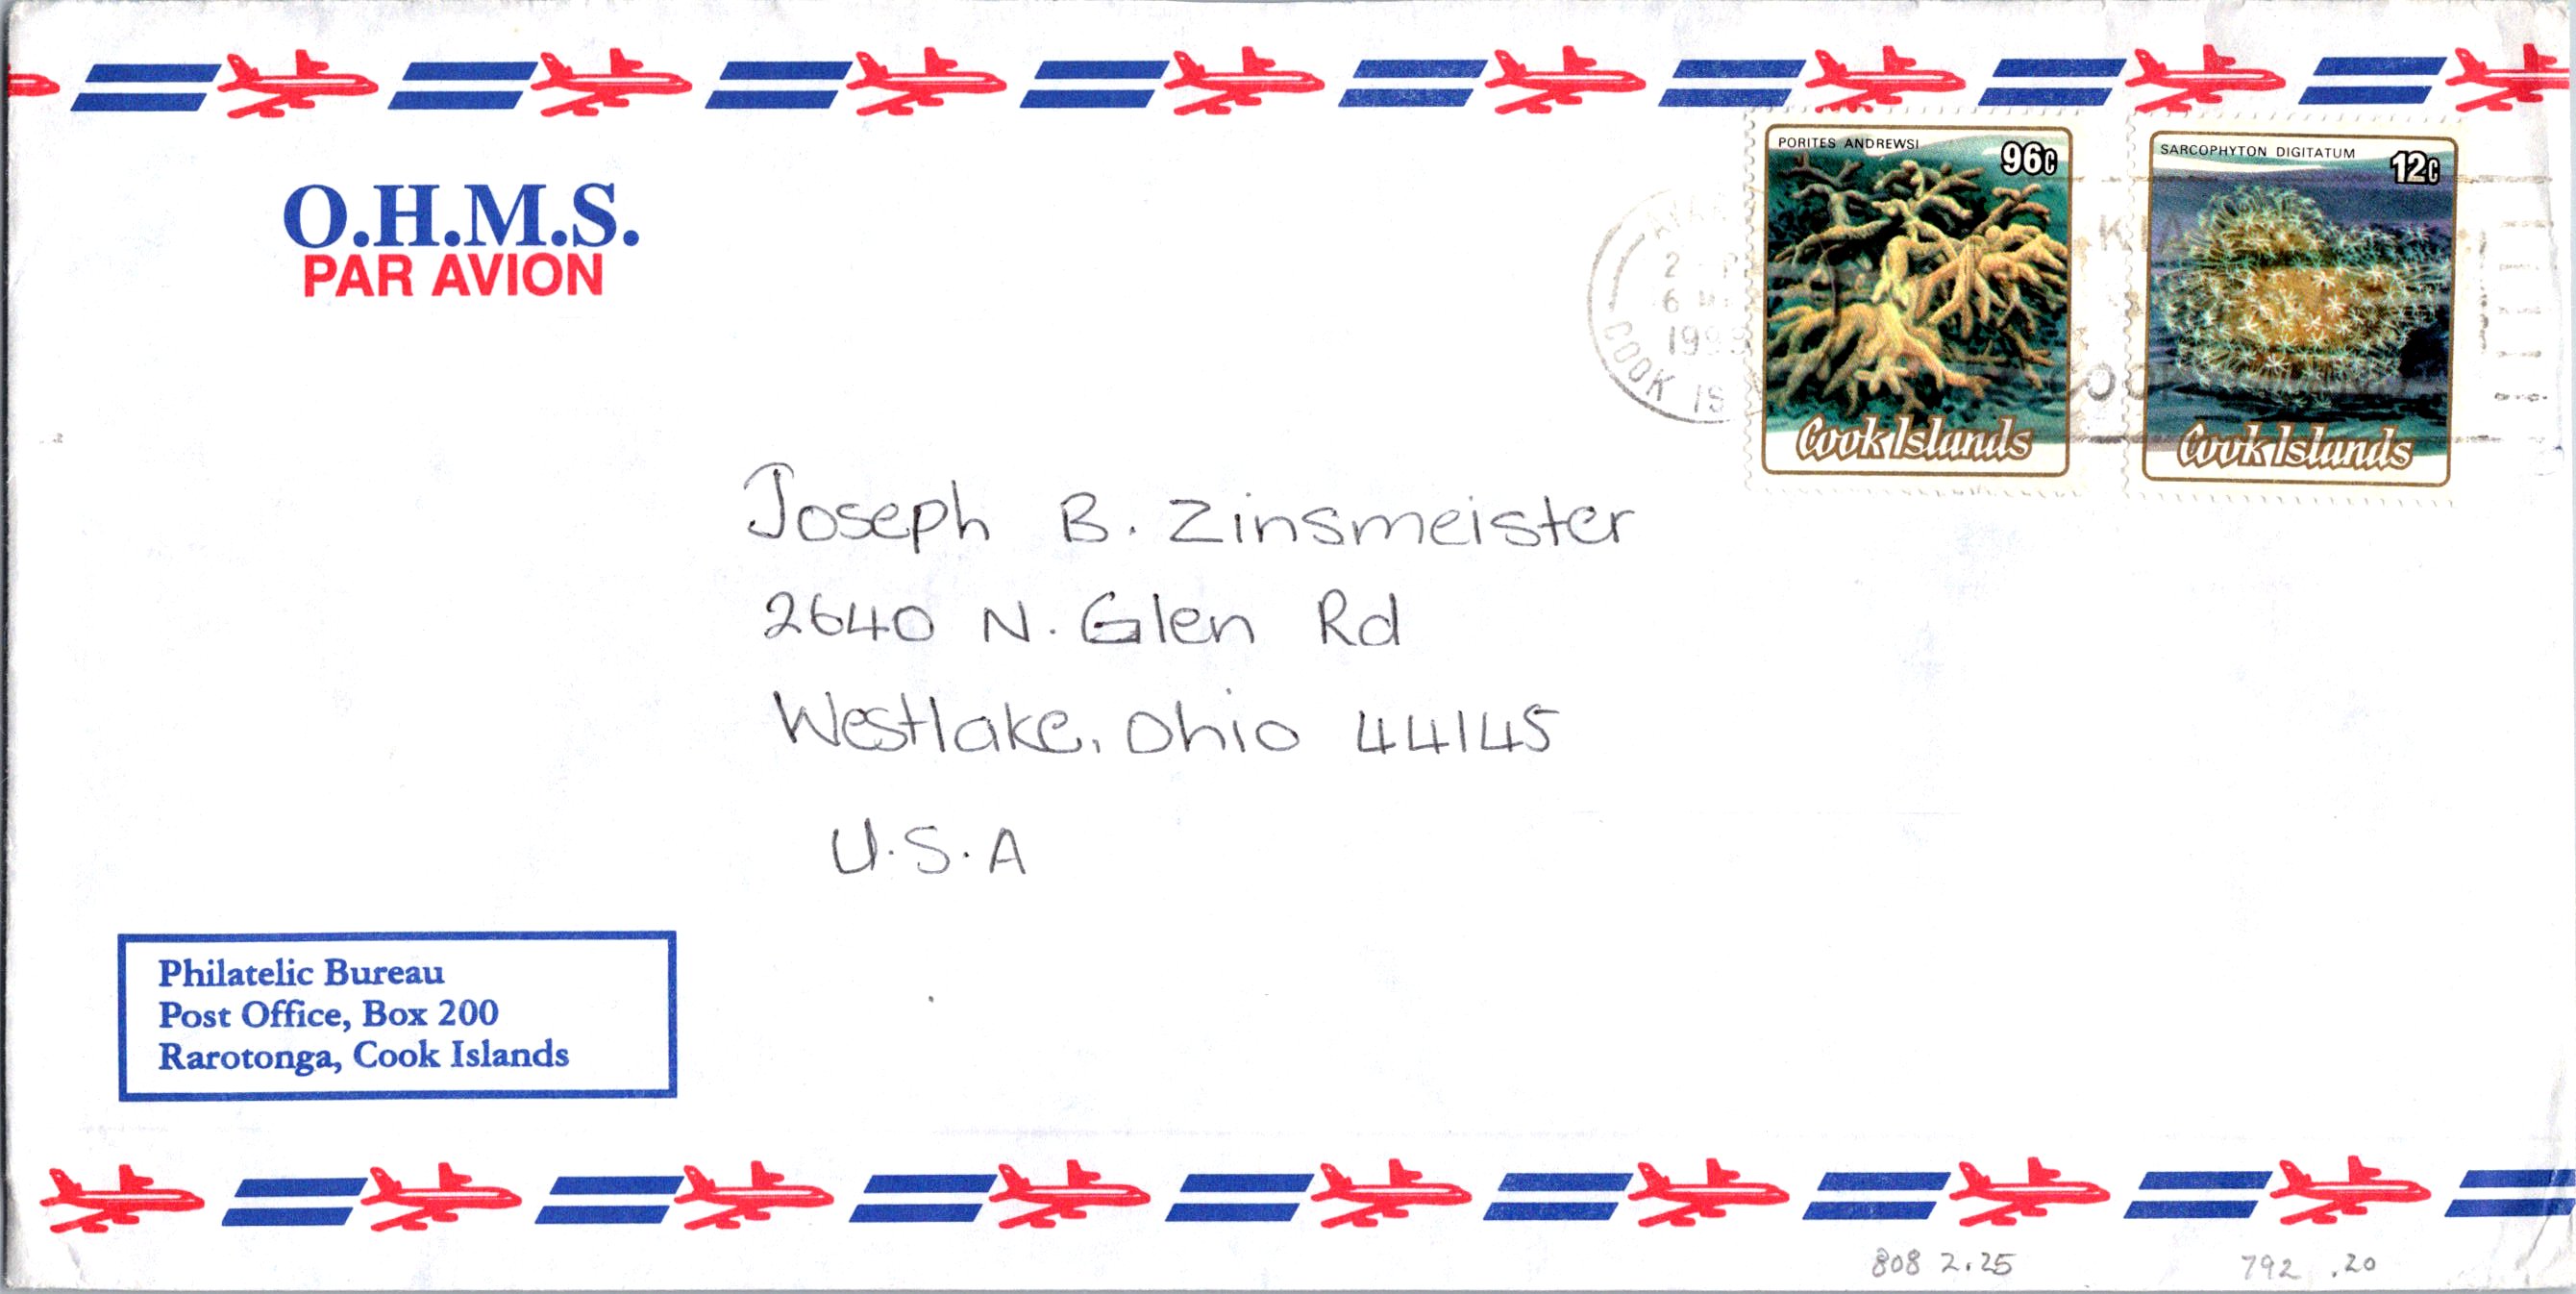 O.H.M.S.
PAR AVION
PORITES ANDREWSI
96c
Cook Islands
SARCOPHYTON DIGITATUM
12c
Cook Islands
COOK IS
Joseph B. Zinsmeister
2640 N. Glen Rd
Westlake, Ohio 44145
U.S.A
Philatelic Bureau
Post Office, Box 200
Rarotonga, Cook Islands
808 2.25
792 .20